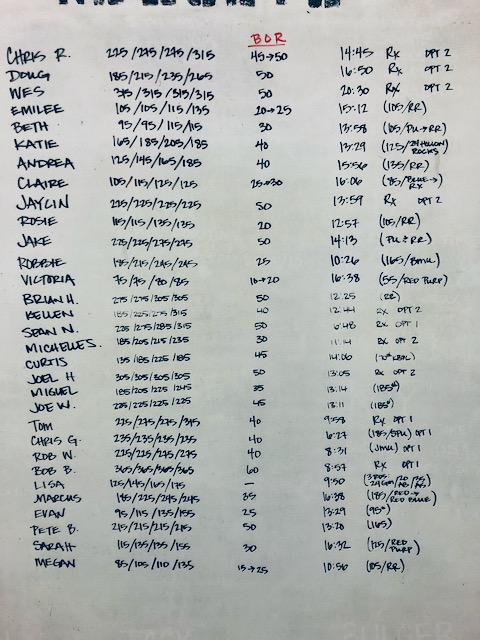 BOR
CHRIS R. 225/275/295/315 45→50 14:45 Rx OPT 2
DOUG 185/215/235/265 50 16:50 Rx OPT 2
WES 315/315/315/315 50 20:30 Rx OPT 2
EMILEE 105/105/115/135 20→25 15:12 (105/RR)
BETH 95/95/115/115 30 13:58 (105/PU→RR)
KATIE 165/185/205/185 40 13:29 (125/
ANDREA 125/145/165/185 40 15:56 (135/RR)
CLAIRE 105/115/125/125 25→30 16:06 (85/BLUE→RX)
JAYLIN 225/225/225/225 50 13:59 Rx OPT 2
ROSIE 115/115/135/135 20 12:57 (105/RR)
JAKE 225/225/275/275 50 14:13 (PU & RR)
ROBBIE 195/215/245/245 25 10:26 (165/BMU)
VICTORIA 75/75/80/85 10→20 16:38 (55/RED PURP)
BRIAN H. 275/275/305/305 50 12:25 (RR)
KELLEN 185/225/275/315 40 12:44 RX OPT 2
SEAN N. 225/275/285/315 50 6:48 RX OPT 1
MICHELLE S. 185/205/215/235 30 11:14 RX OPT 2
CURTIS 135/185/225/185 45 14:06
JOEL H 305/305/305/305 50 13:05 RX OPT 2
MIGUEL 185/205/225/245 35 13:14 (185#)
JOE W. 225/225/225/225 45 13:11 (185#)
TOM 225/275/295/315 40 9:58 Rx OPT 1
CHRIS G. 235/235/235/235 40 16:27 (185/BPU) OPT 1
ROB W. 225/225/275/275 40 8:31 (JMU) OPT 1
BOB B. 365/365/365/365 60 8:57 RX OPT 1
LISA 125/145/165/175 — 9:50
MARCUS 185/225/245/245 35 16:38 (185/RED→RED BLUE)
EVAN 95/115/135/155 25 13:29 (95#)
PETE B. 215/215/215/215 50 13:20 (165)
SARAH 115/135/135/155 30 16:32 (125/RED PURP)
MEGAN 85/105/110/135 15→25 10:56 (105/RR)